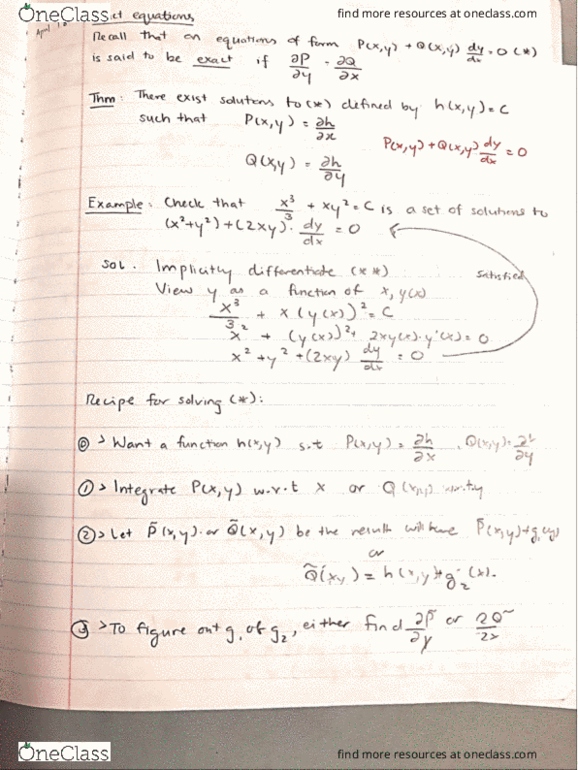 OneClass
find more resources at oneclass.com
ct equations
April
Recall that an equations of form P(x,y) + Q(x,y) dy/dx = 0 (*)
is said to be exact if ∂P/∂y = ∂Q/∂x
Thm: There exist solutions to (*) defined by h(x,y) = C
such that P(x,y) = ∂h/∂x
P(x,y) + Q(x,y) dy/dx = 0
Q(x,y) = ∂h/∂y
Example: Check that x³/3 + xy² = C is a set of solutions to
(x²+y²) + (2xy) · dy/dx = 0
Sol. Implicitly differentiate (**)
satisfied
View y as a function of x, y(x)
x³/3 + x(y(x))² = C
x² + (y(x))² + 2xy(x)·y'(x) = 0
x² + y² + (2xy) dy/dx = 0
Recipe for solving (*):
⓪ > Want a function h(x,y) s.t P(x,y) = ∂h/∂x , Q(x,y) = ∂h/∂y
① > Integrate P(x,y) w.r.t x or Q(x,y)
② > Let P̃(x,y) or Q̃(x,y) be the result will have P̃(x,y)+g₁(y)
or
Q̃(x,y) = h(x,y)+g₂(x).
③ > To figure out g₁ of g₂, either find ∂P̃/∂y or ∂Q̃/∂x
OneClass
find more resources at oneclass.com